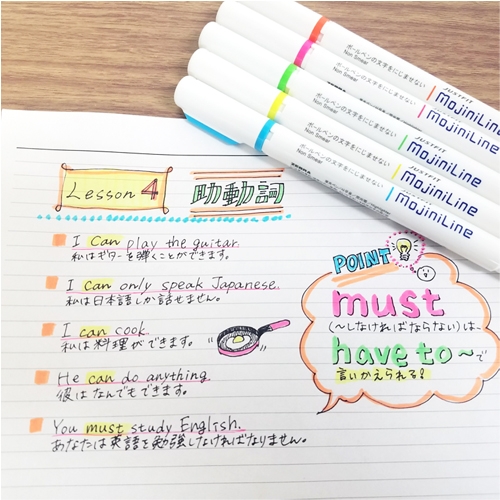 ボールペンの文字をにじませない
Non Smear
JUSTFIT
mojiniLine
ボールペンの文字をにじませない
Non Smear
JUSTFIT
mojiniLine
ボールペンの文字をにじませない
Non Smear
JUSTFIT
mojiniLine
ボールペンの文字をにじませない
Non Smear
JUSTFIT
mojiniLine
ボールペンの文字をにじませない
Non Smear
ZEBRA
JUSTFIT
mojiniLine
Lesson 4 助動詞
I can play the guitar.
私はギターを弾くことができます。
I can only speak Japanese.
私は日本語しか話せません。
I can cook.
私は料理ができます。
He can do anything.
彼はなんでもできます。
You must study English.
あなたは英語を勉強しなければなりません。
POINT
must
(〜しなければならない)は、
have to 〜で
言いかえられる!